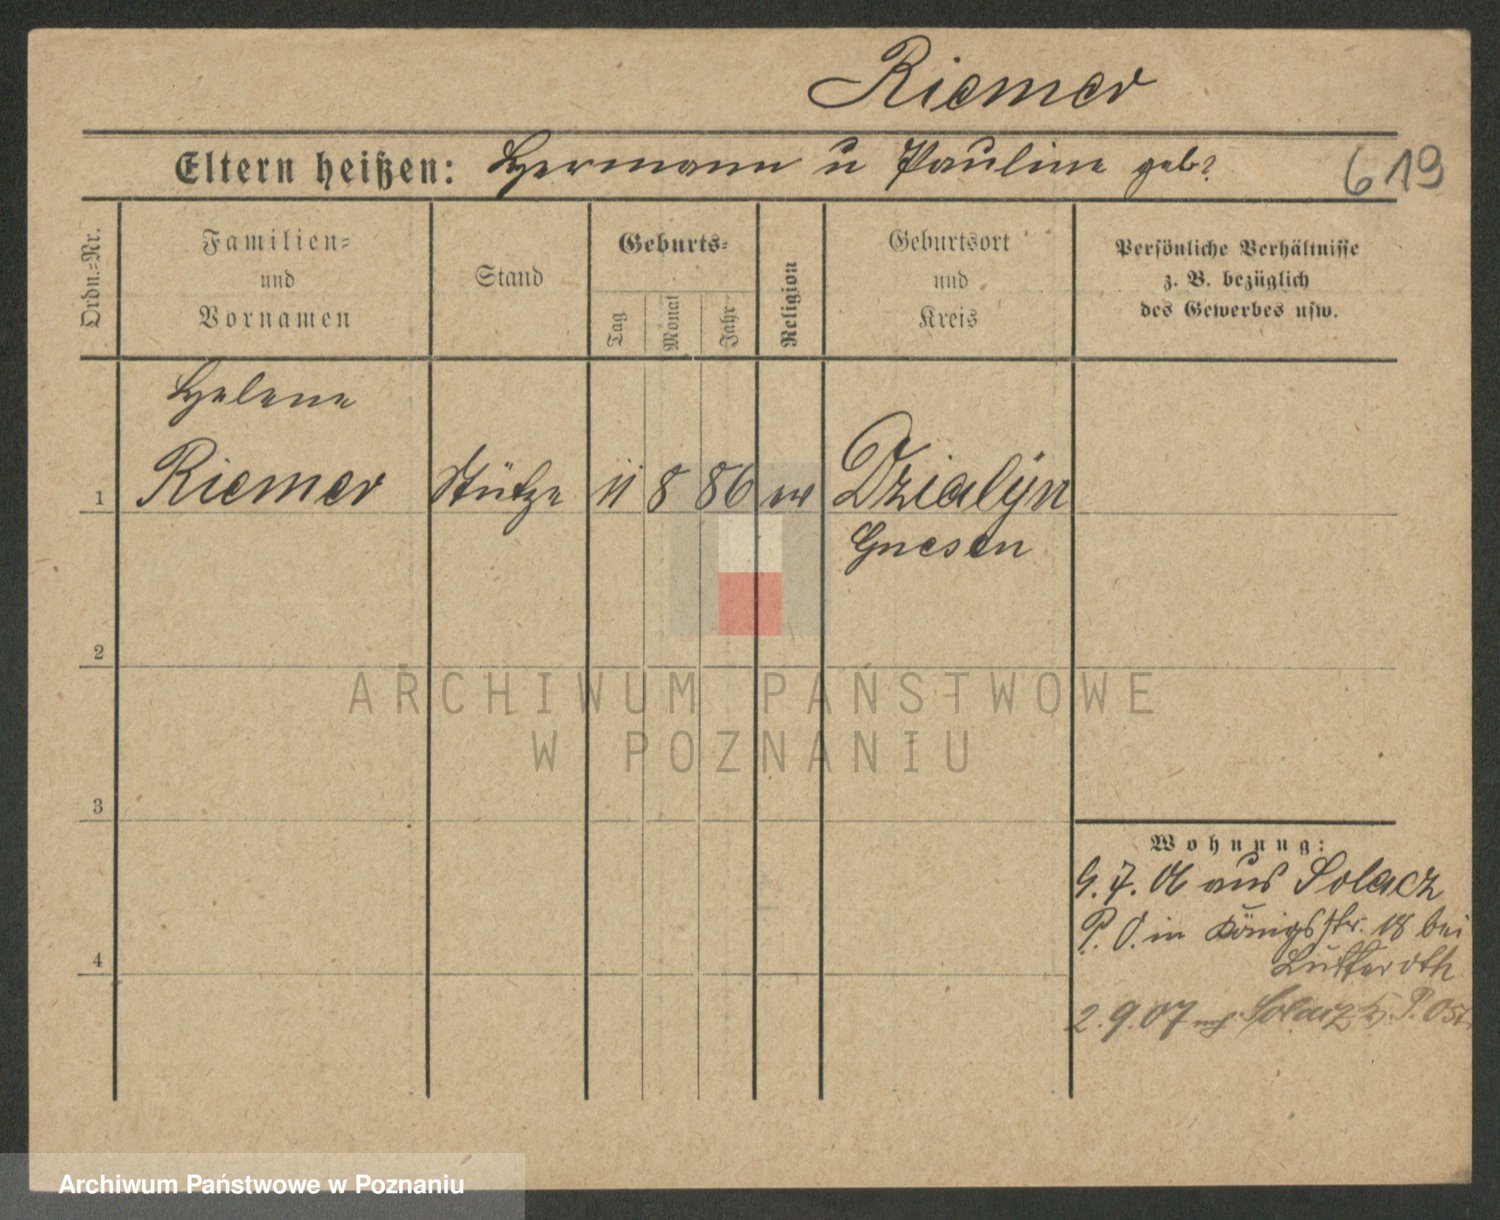 Riemer
Eltern heißen: Hermann u Pauline geb?
619
Ordn.-Nr.
Familien-
und
Vornamen
Stand
Geburts-
Tag
Monat
Jahr
Religion
Geburtsort
und
Kreis
Persönliche Verhältnisse
z. B. bezüglich
des Gewerbes usw.
Helene
1 Riemer Stütze 11 8 86 ev Dzialyn
Gnesen
2
3
4
Wohnung:
9.7.06 aus Solacz
P. O. in Königsstr. 18 bei
Lutteroth
2.9.07 Solacz P. Ost
ARCHIWUM PAŃSTWOWE
W POZNANIU
Archiwum Państwowe w Poznaniu